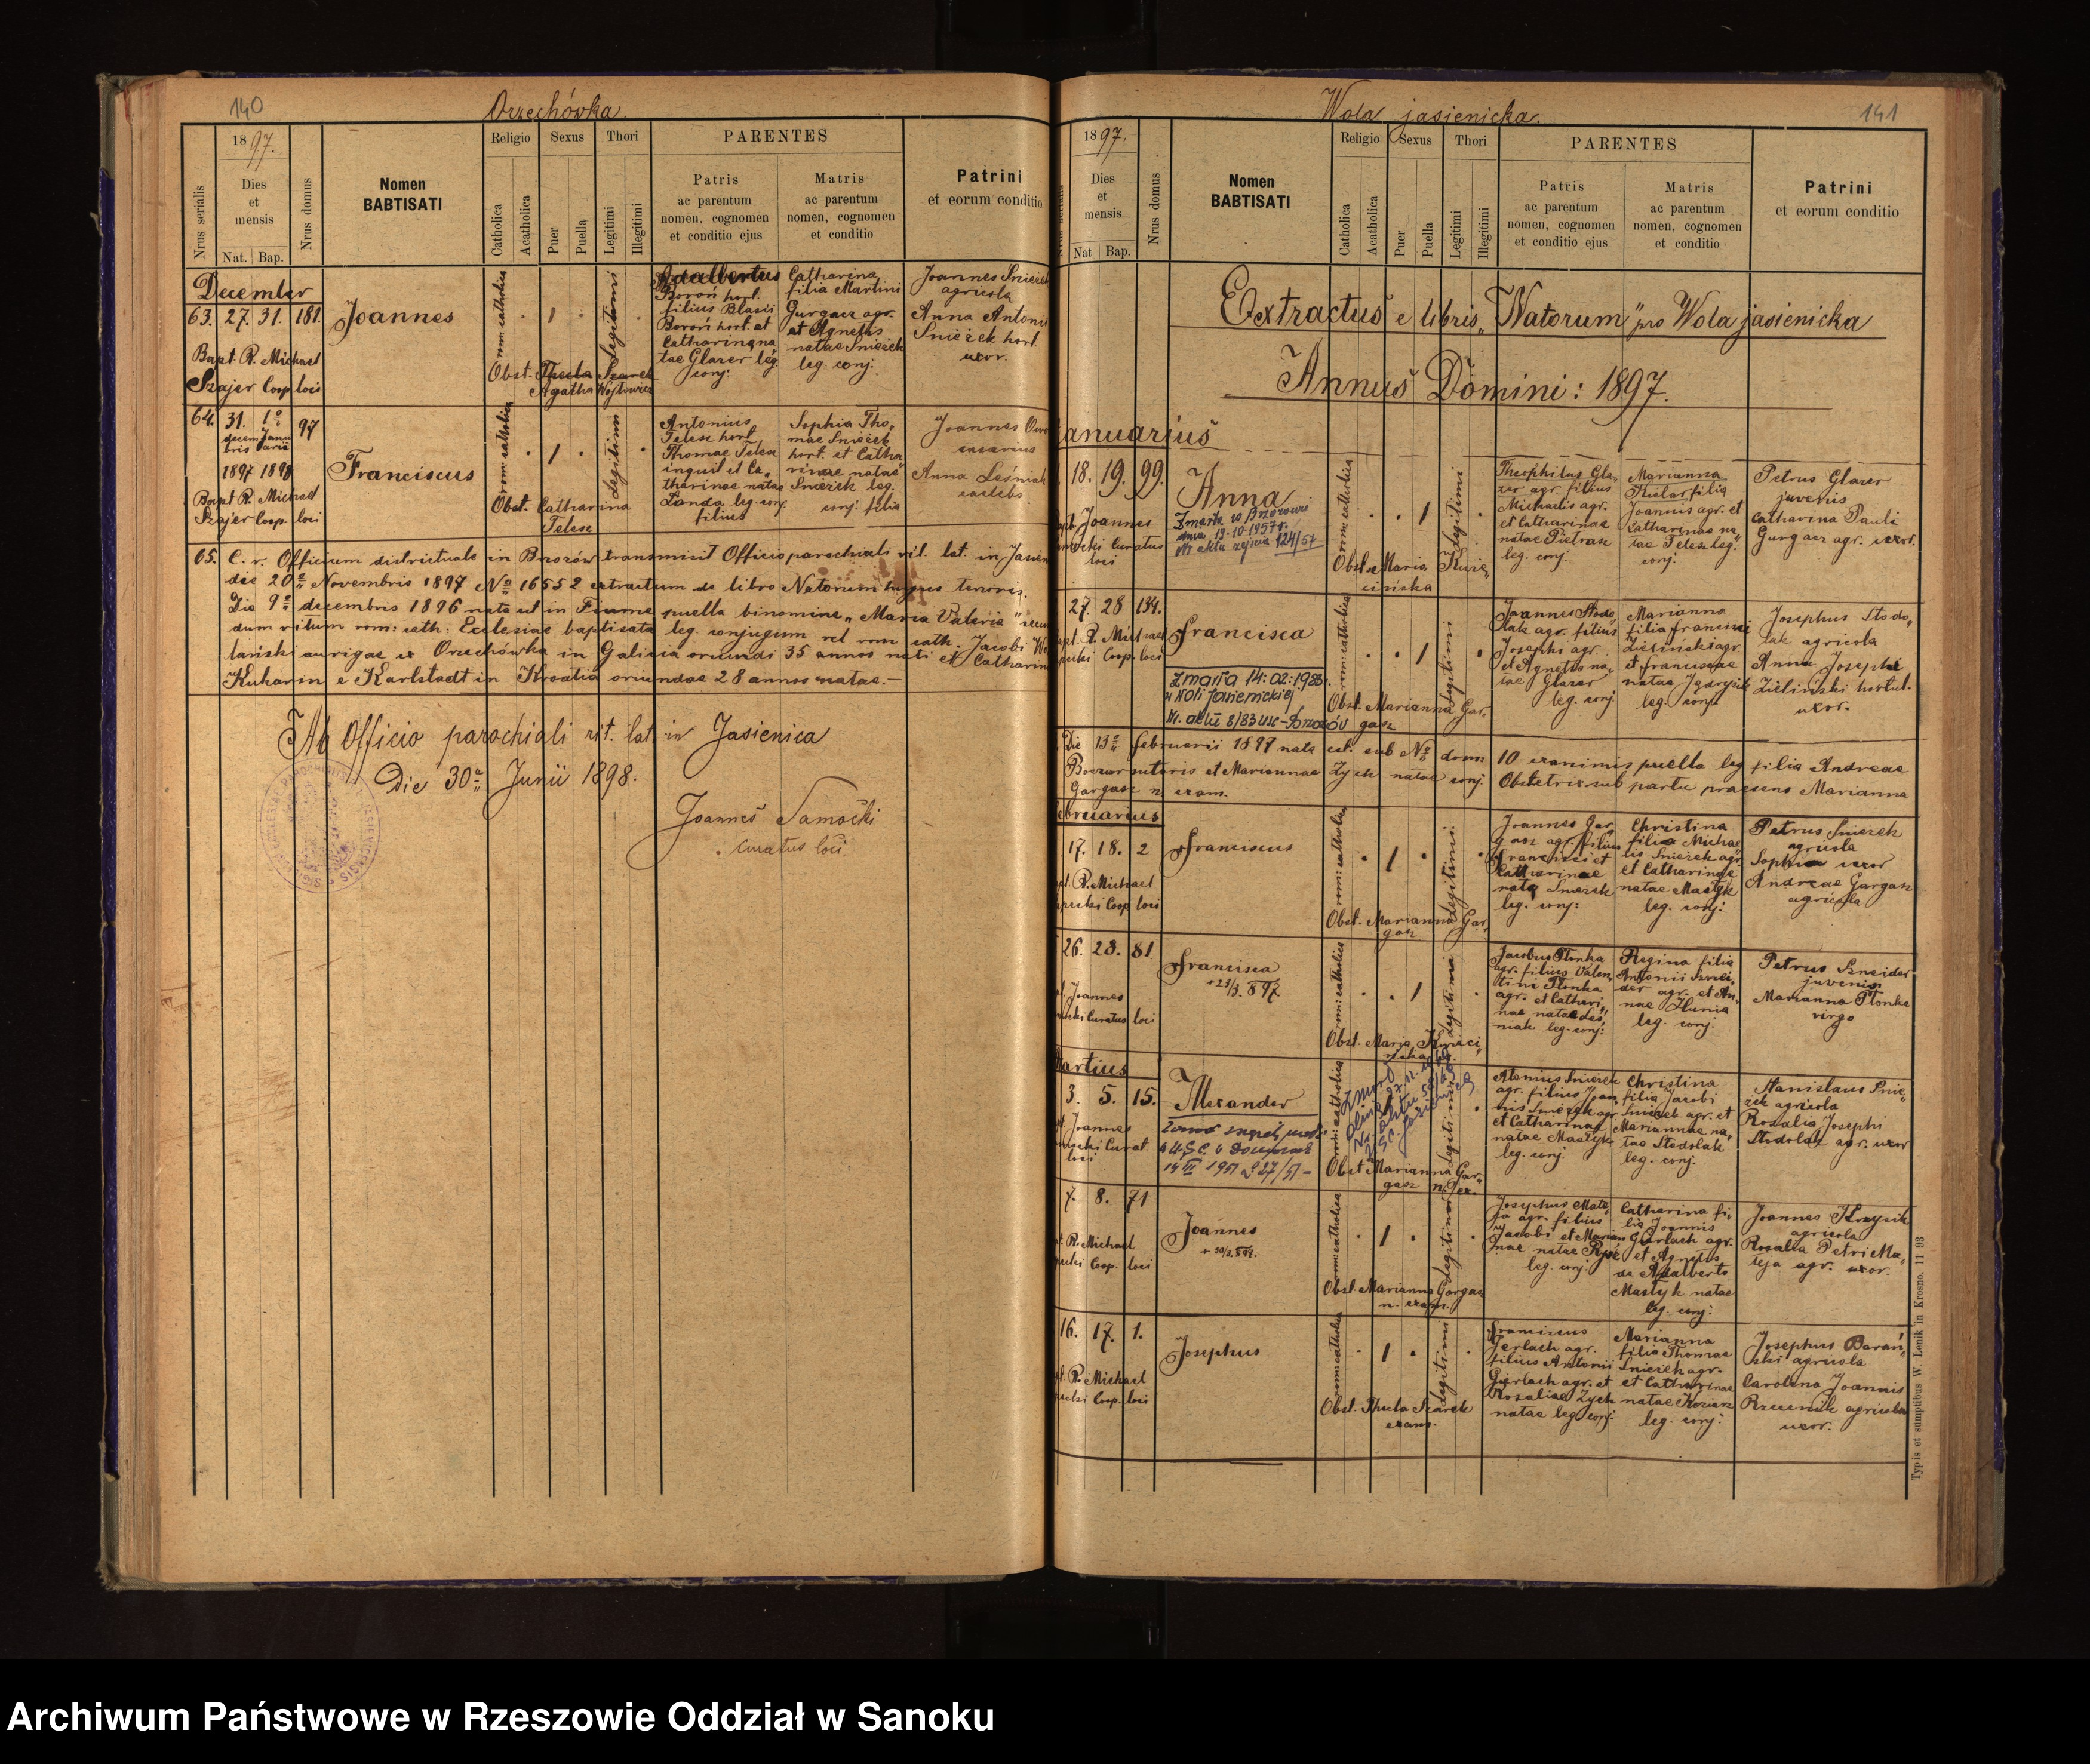 140
Orzechówka.
1897.
Nrus serialis
Dies
et
mensis
Nat. Bap.
Nrus domus
Nomen
BABTISATI
Religio
Catholica
Acatholica
Sexus
Puer
Puella
Thori
Legitimi
Illegitimi
PARENTES
Patris
ac parentum
nomen, cognomen
et conditio ejus
Matris
ac parentum
nomen, cognomen
et conditio
Patrini
et eorum conditio
December
63. 27. 31. 181.
Joannes
Bapt. R. Michael
Szajer Coop. loci
rom: catholica
1
Legitimi
Obst. Thecla Szarek
Agatha Wojtowicz
Adalbertus
Boroń hort.
filius Blasii
Boroń hort. et
Catharina na
tae Glazer leg.
conj.
Catharina
filia Martini
Gurgacz agr.
et Agnetis
natae Śnieżek
leg. conj.
Joannes Śnieżek
agricola
Anna Antoni
Śnieżek hort.
uxor.
64. 31. 1a 97
decem Janu
bris aria
1897 1898
Franciscus
Bapt. R. Michael
Szajer Coop. loci
rom: catholica
1
Legitimi
Obst. Catharina
Telesz
Antonius
Telesz hort.
Thomae Telesz
inquil. et Ca„
tharinae natae
Landa leg. conj.
filius
Sophia Tho„
mae Śnieżek
hort. et Catha„
rinae natae
Śnieżek leg.
conj. filia
Joannes
Anna Leśniak
caelebs.
65. C. r. Officium districtuale in Brzozów transmisit Officio parochiali rit. lat. in Jasien
die 20a Novembris 1897 No 16552 extraitum de libro Natorum hujus tenoris.
Die 9a decembris 1896 nata est in Fiume puella binomine „Maria Valeria" secun
dum ritum rom: cath: Ecclesiae baptisata leg. conjugum rel. rom cath. Jacobi Wo
lański aurigae ex Orzechówka in Galicia oriundi 35 annos nati et Catharin
Kukarin e Karlstadt in Kroatia oriundae 28 annos natae.—
Ab Officio parochiali rit. lat. in Jasienica
Die 30a Junii 1898.
Joannes Samocki
Curatus loci.
Wola jasienicka.
141
1897.
Dies
et
mensis
Nat Bap.
Nrus domus
Nomen
BABTISATI
Religio
Catholica
Acatholica
Sexus
Puer
Puella
Thori
Legitimi
Illegitimi
PARENTES
Patris
ac parentum
nomen, cognomen
et conditio ejus
Matris
ac parentum
nomen, cognomen
et conditio
Patrini
et eorum conditio
Extractus e libris „Natorum" pro Wola jasienicka
Annus Domini: 1897.
anuarius
18. 19. 99.
Anna
Zmarła w Brzozowie
dnia 19.10.1957 r.
Nr aktu zejścia 124/57
Joannes
Curatus
loci
rom: catholica
1
Legitimi
Obst. Maria Kuzie„
cińska
Theophilus Gla„
zer agr. filius
Michaelis agr.
et Catharinae
natae Pietrasz
leg. conj.
Marianna
filia
Joannis agr. et
Catharinae na„
tae Telesz leg.
conj.
Petrus Glazer
juvenis
Catharina Pauli
Gurgacz agr. uxor.
27. 28 134.
Francisca
Zmarła 14:02:1983r.
w Woli Jasienickiej
Nr. aktu 8/83 usc-Brzozów
R. Michael
Coop. loci
rom: catholica
1
Legitimi
Obst. Marianna Gar„
gasz
Joannes Stodo„
lak agr. filius
Josephi agr.
et Agnetis na„
tae Glazer
leg. conj.
Marianna
filia Francisci
Zieliński agr.
et Franciscae
natae
leg. conj.
Josephus Stodo„
lak agricola
Anna Josephi
Zieliński hortul.
uxor.
Die 13a Februarii 1897 nata est sub No dom: 10 exanimis puella leg. filia Andreae
Boczar sutoris et Mariannae Zych natae conj. Obstetrix sub partu praesens Marianna
Gargasz n. exam.
ebruarius
17. 18. 2
Franciscus
R. Michael
Coop. loci
rom: catholica
1
Legitimi
Obst. Marianna Gar„
gasz
Joannes Gar„
gasz agr. filius
Francisci et
Catharinae
nata Śnieżek
leg. conj:
Christina
filia Micha„
lis Śnieżek agr.
et Catharinae
natae Mastyk
leg. conj:
Petrus Śnieżek
agricola
Sophia uxor
Andreae Gargasz
agricola
26. 28. 81
Francisca
+23/3. 897
Joannes
Curatus loci
rom: catholica
1
Legitimi
Obst. Maria
Jacobus Płonka
agr. filius Valen„
tini Płonka
agr. et Cathari„
nae natae Leś„
niak leg. conj:
Regina filia
Antonii Sznei„
der agr. et An„
nae
leg. conj.
Petrus Szneider
juvenis
Marianna Płonka
virgo
artius
3. 5. 15.
Alexander
14 III 1951 L 27/51 -
Joannes
Curat.
loci
rom: catholica
Legitimi
Obst. Marianna Gar„
gasz n. ex.
Atonius Śnieżek
agr. filius Joan„
nis Śnieżek agr.
et Catharinae
natae Mastyk
leg. conj.
Christina
filia Jacobi
Śnieżek agr. et
Mariannae na„
tae Stodolak
leg. conj.
Stanislaus Śnie„
żek agricola
Rozalia Josephi
Stodolak agr. uxor
7. 8. 71
Joannes
R. Michael
Coop. loci
rom: catholica
1
Legitimi
Obst. Marianna Gargasz
n. exam.
Josephus Mate„
ja agr. filius
Jacobi et Marian„
nae natae
leg. conj.
Catharina fi„
lia Joannis
Gierlach agr.
et Agnetis
de Adalberto
Mastyk natae
leg. conj:
Joannes Krzysik
agricola
Rosalia Petri Ma„
teja agr. uxor.
16. 17. 1.
Josephus
R. Michael
Coop. loci
rom: catholica
1
Legitimi
Obst. Thecla Szarek
exam.
Franciscus
Gerlach agr.
filius Antonii
Gierlach agr. et
Rosaliae Zych
natae leg. conj.
Marianna
filia Thomae
Śnieżek agr.
et Catharinae
natae
leg. conj:
Josephus Barań„
ski agricola
Carolina Joannis
agricola
uxor.
Typis et sumptibus W. Lenik in Krosno. 11 93
Archiwum Państwowe w Rzeszowie Oddział w Sanoku